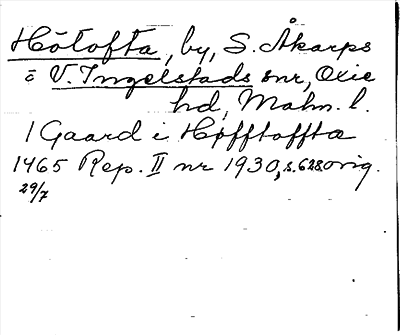 Hötofta, by, S. Åkarps
o V. Ingelstads snr, Oxie
hd, Malm. l.
1 Gaard i Høfftoffta
1465 Rep. II nr 1930, s. 628 orig.
29/7